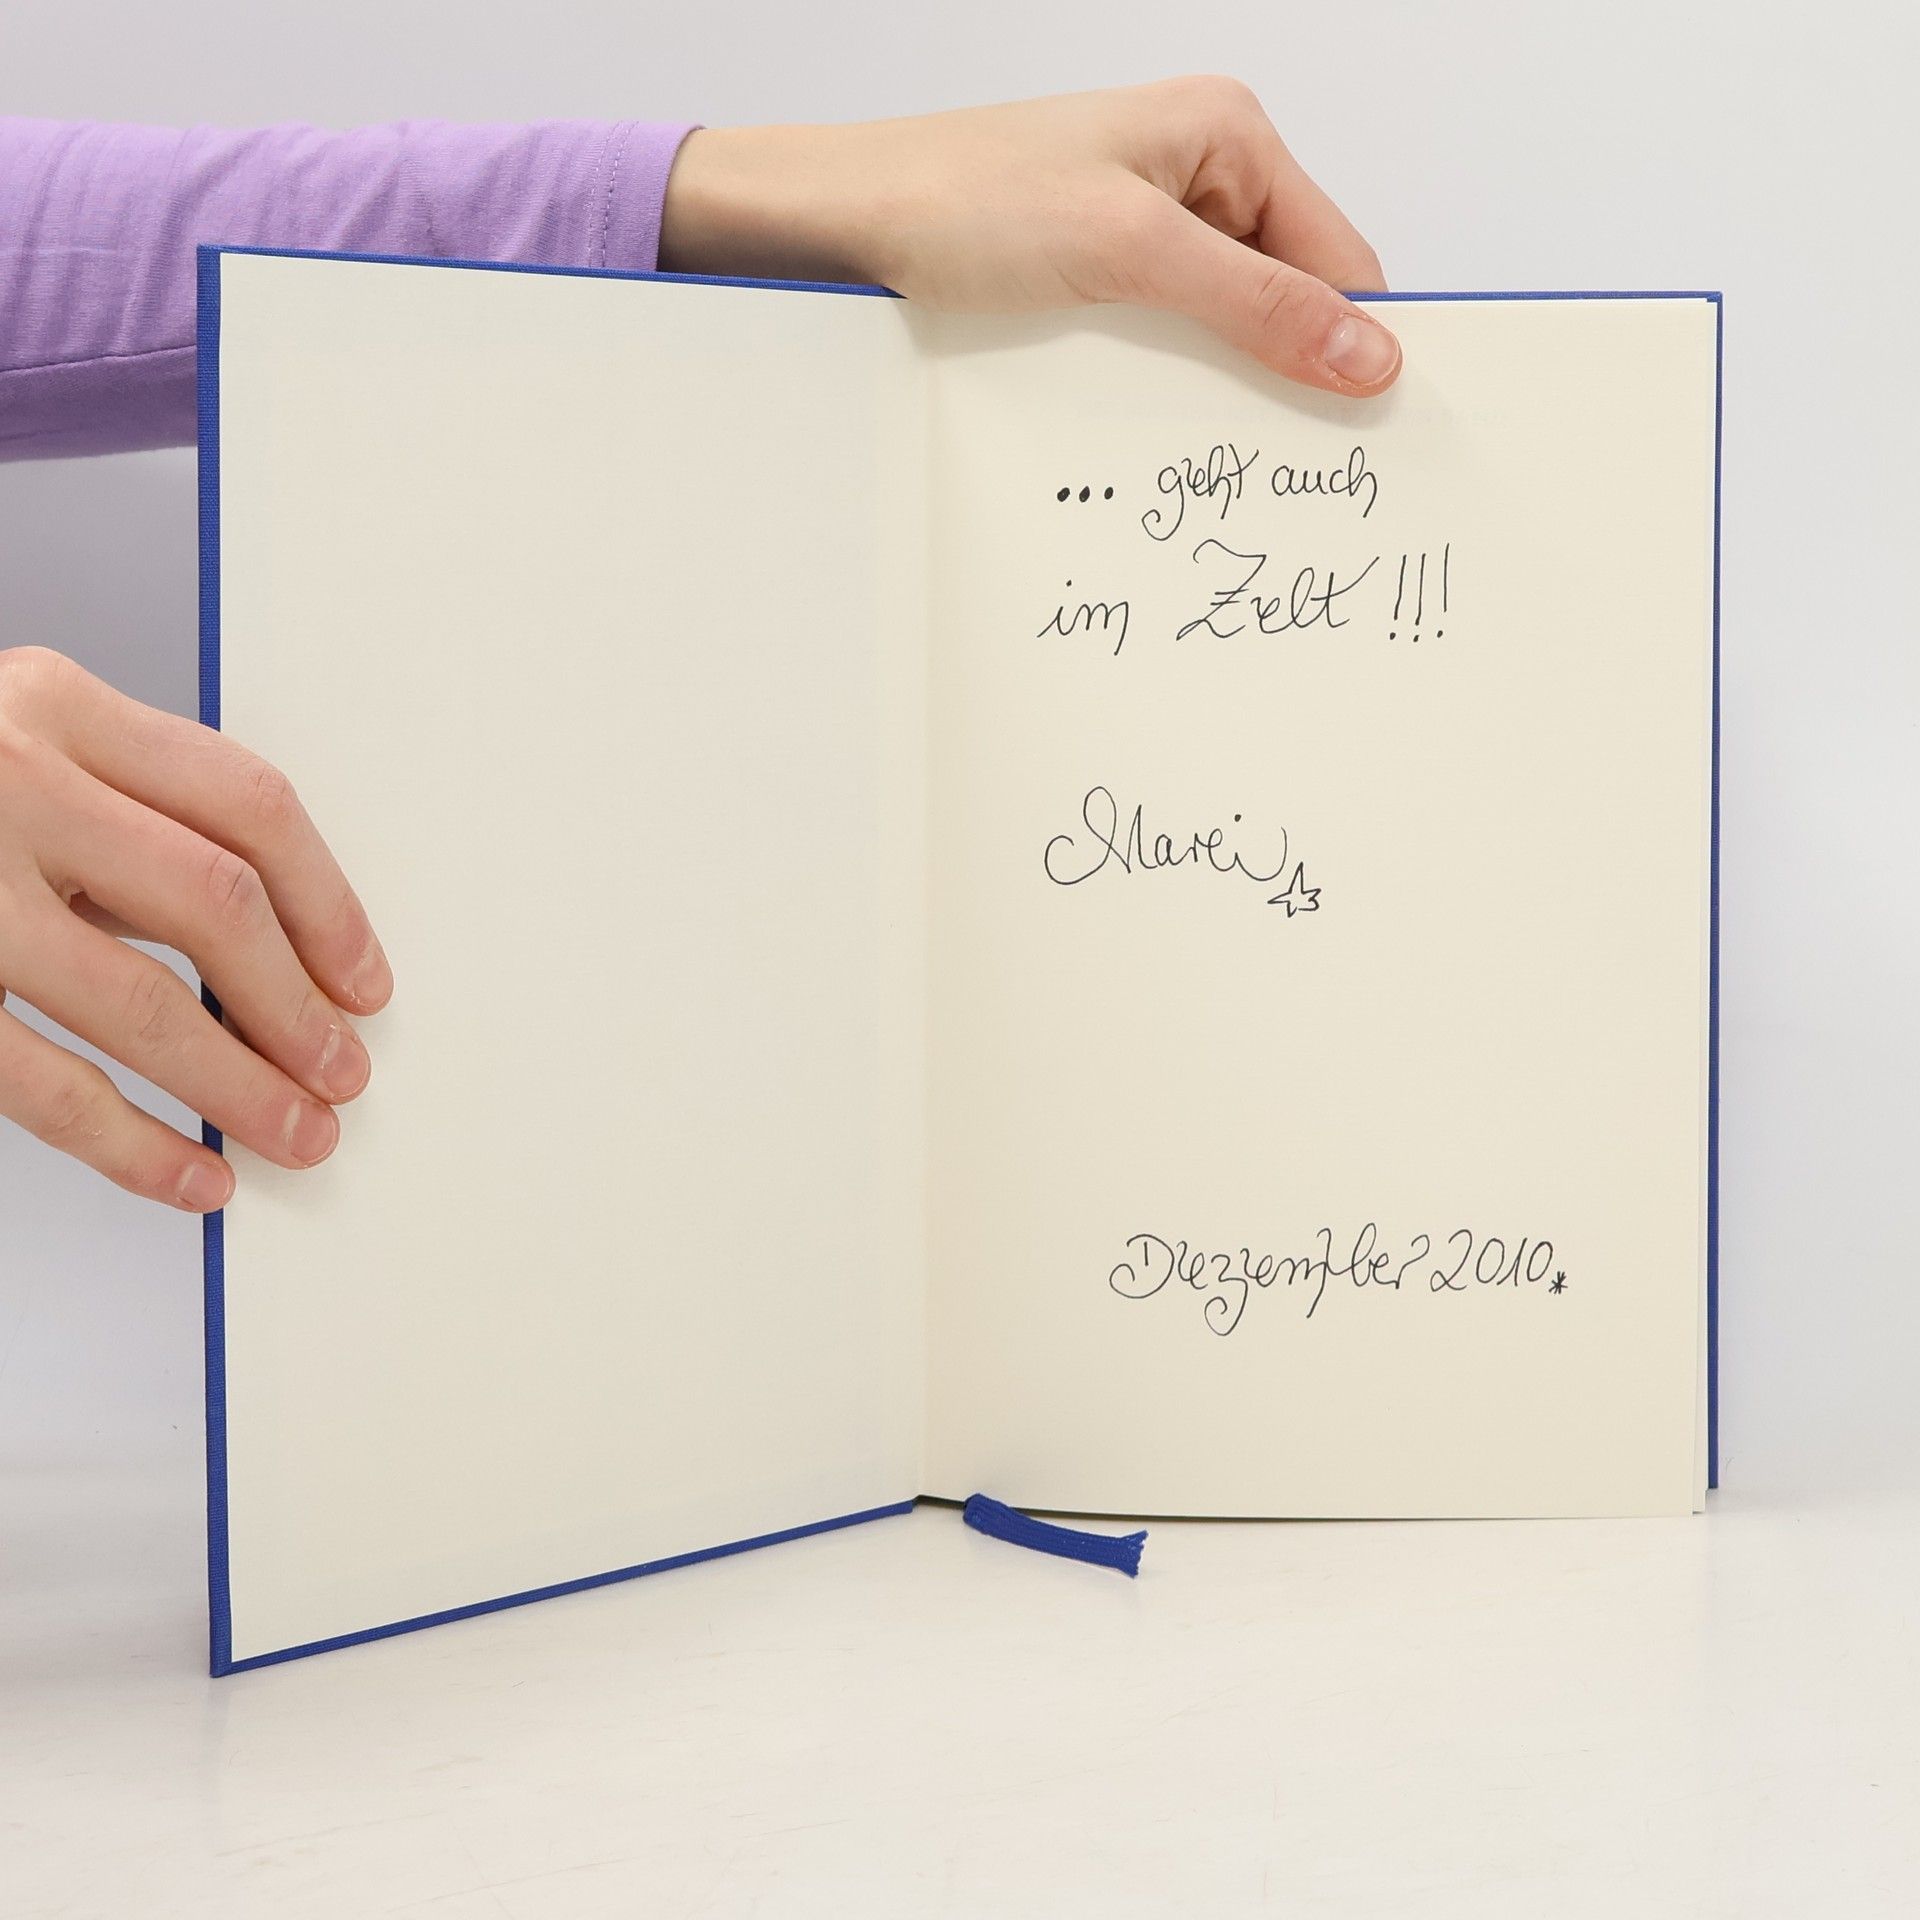 ... geht auch
im Zelt !!!
Marei
Dezember 2010*